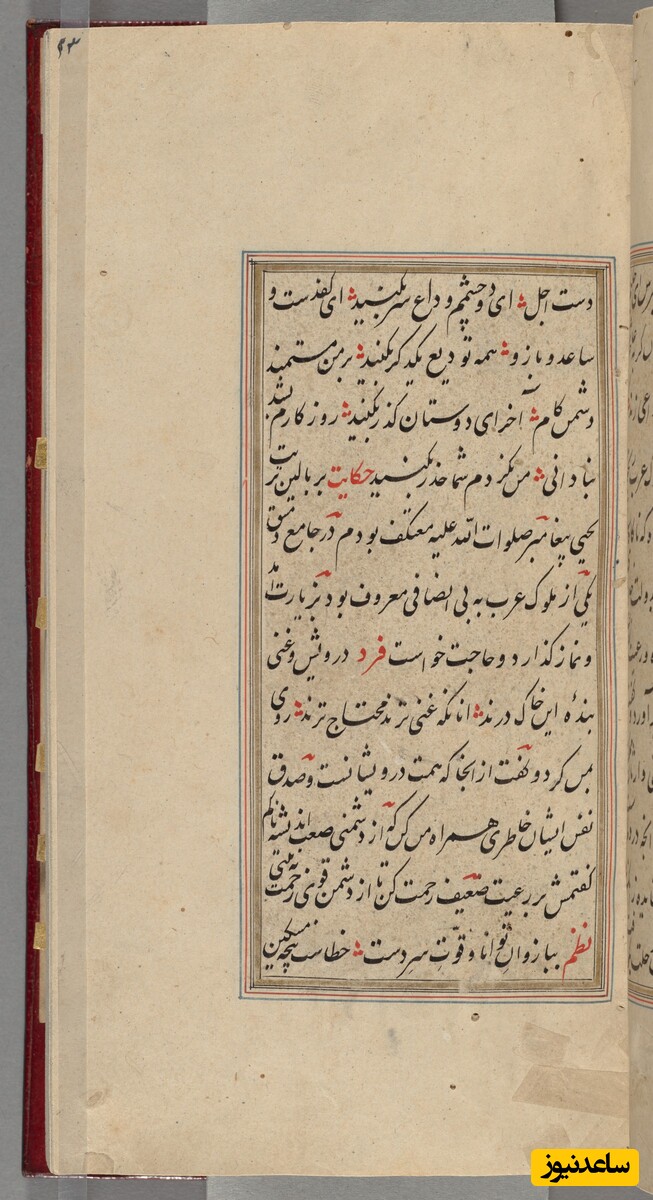 ۴۳
دست اجل ای دو چشم وداع سر بکنید ای کف دست و
ساعد و بازو همه تودیع یکدگر بکنید بر من مستمند
دشمن کام اخر ای دوستان گذر بکنید روزگارم بشد
بنادانی من نکردم شما حذر بکنید حکایت بر بالین تربت
یحیی پیغامبر صلوات الله علیه معتکف بودم در جامع دمشق
یکی از ملوک عرب به بی انصافی معروف بود بزیارت امد
و نماز گذارد و حاجت خواست فرد درویش و غنی
بندهٔ این خاک درند انانکه غنی ترند محتاج ترند روی
بمن کرد و گفت از انجا که همت درویشانست و صدق
نفس ایشان خاطری همراه من کن که از دشمنی صعب اندیشه ناکم
گفتمش بر رعیت ضعیف رحمت کن تا از دشمن قوی زحمت نه بینی
نظم ببازوان توانا و قوّت سر دست خطاست پنجه مسکین
ساعدنیوز